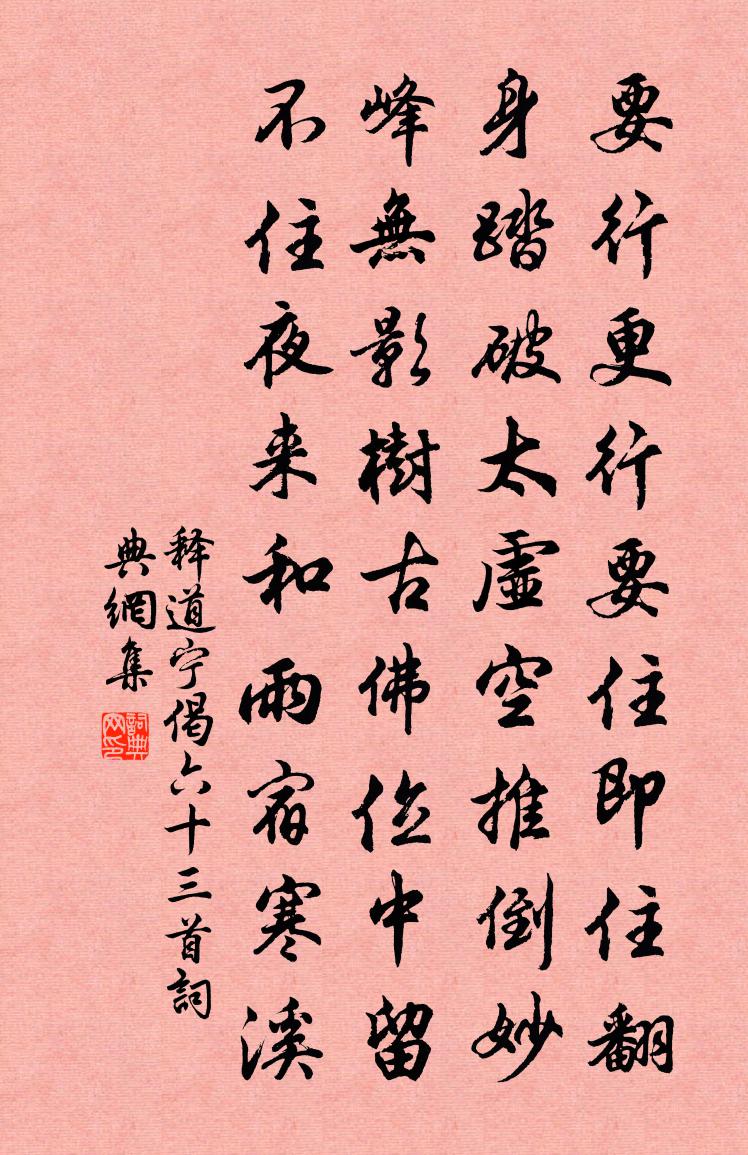 要行更行要住即住翻
身踏破太虛空推倒妙
峰無影樹古佛位中留
不住夜来和雨宿寒溪
释道宁偈六十三首詞
典網集
詞典
网印